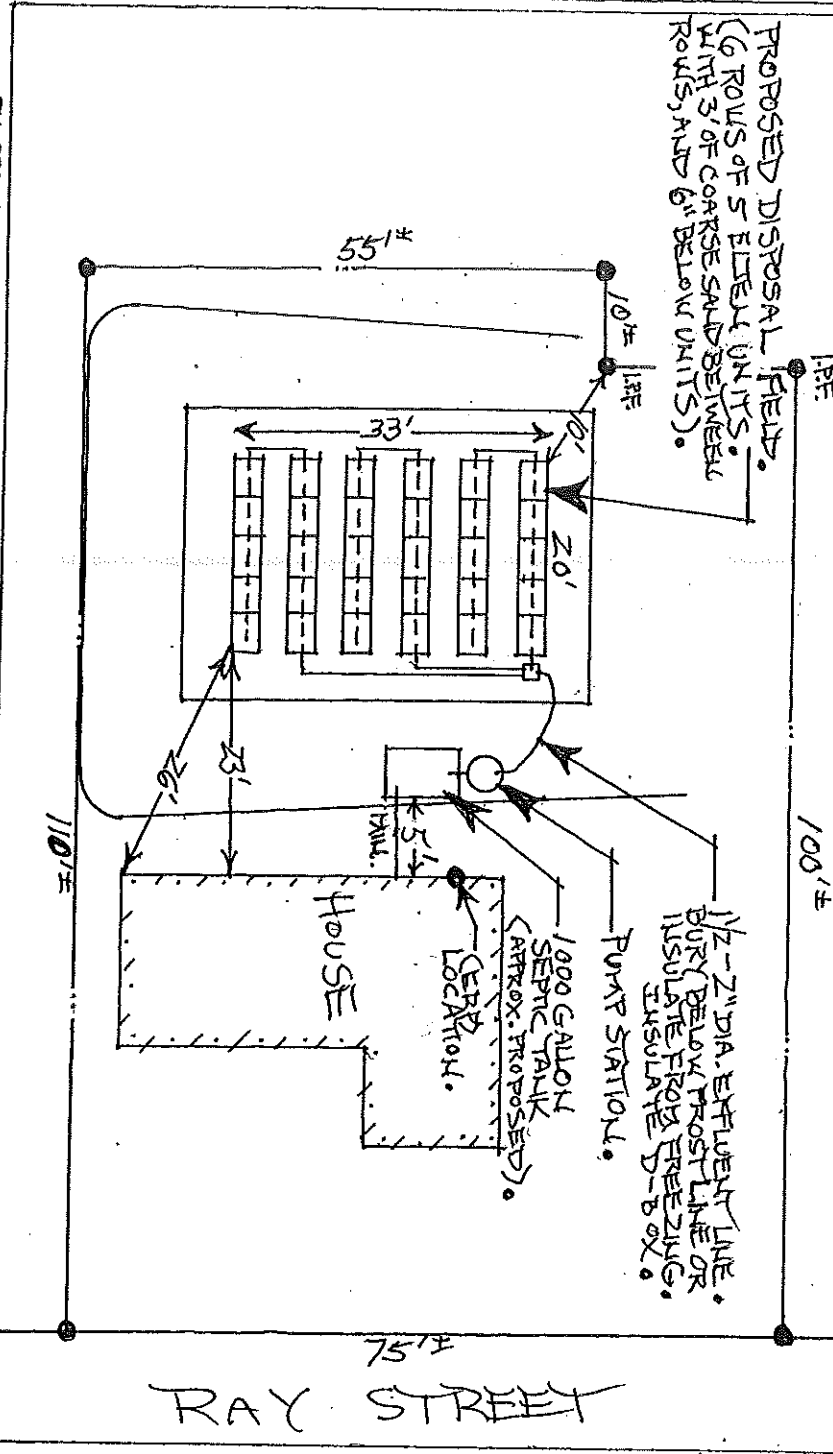 PROPOSED DISPOSAL FIELD.
(6 ROWS OF 5 ELJEN UNITS.
WITH 3' OF COARSE SAND BETWEEN
ROWS, AND 6" BELOW UNITS).
I.P.F.
100'±
55'±
10'±
I.P.F.
10'
33'
20'
1 1/2-2" DIA. EFFLUENT LINE.
BURY BELOW FROST LINE OR
INSULATE FROM FREEZING.
INSULATE D-BOX.
PUMP STATION.
1000 GALLON
SEPTIC TANK
(APPROX. PROPOSED).
5'
MIN.
(ERP)
LOCATION.
23'
26'
HOUSE
110'±
75'±
RAY STREET